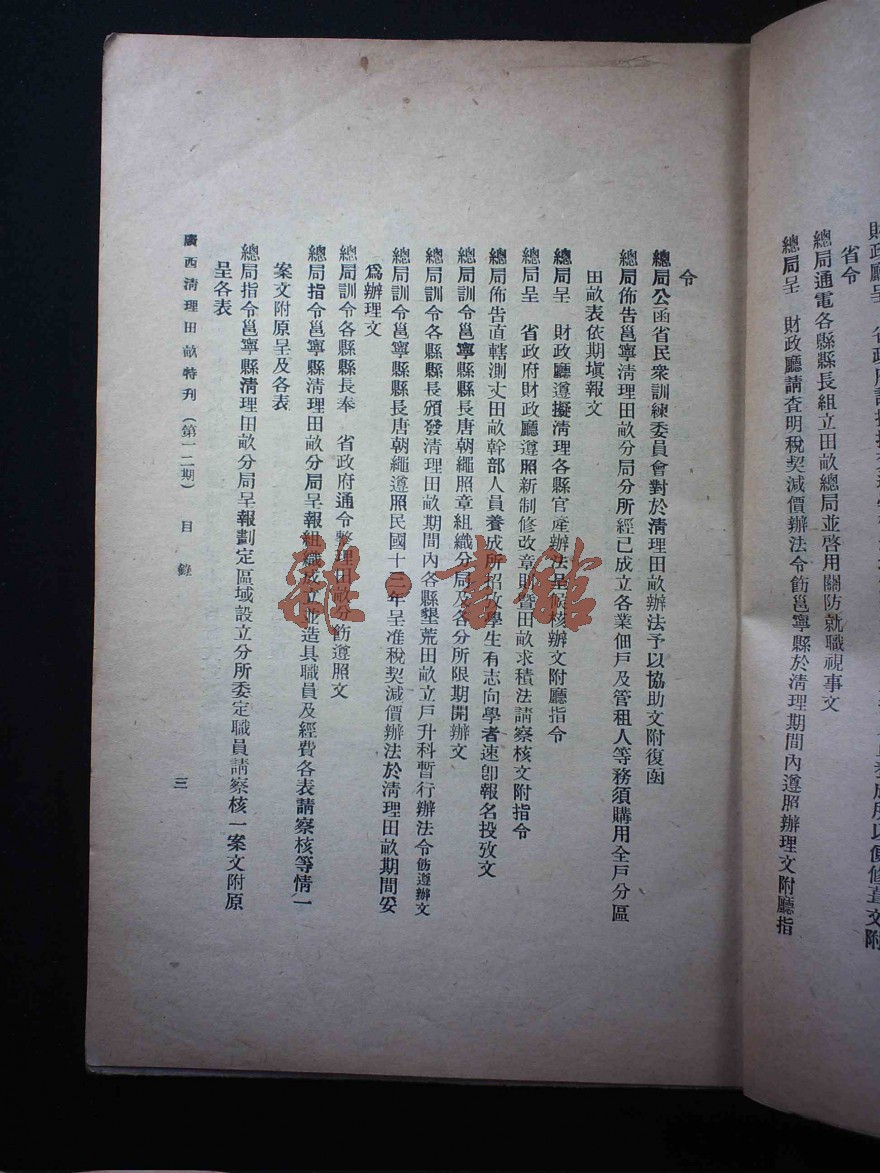 財政廳呈　省政府
省令
總局通電各縣縣長組立田畝總局並啓用關防就職視事文
總局呈　財政廳請查明稅契減價辦法令飭邕寧縣於清理期間內遵照辦理文附廳指
令
總局公函省民衆訓練委員會對於清理田畝辦法予以協助文附復函
總局佈告邕寧清理田畝分局分所經已成立各業佃戶及管租人等務須購用全戶分區
田畝表依期塡報文
總局呈　財政廳遵擬清理各縣官產辦法呈候核辦文附廳指令
總局呈　省政府財政廳遵照新制修改章則暨田畝求積法請察核文附指令
總局佈告直轄測丈田畝幹部人員養成所招攷學生有志向學者速卽報名投攷文
總局訓令邕寧縣縣長唐朝繩照章組織分局及各分所限期開辦文
總局訓令各縣縣長頒發清理田畝期間內各縣墾荒田畝立戶升科暫行辦法令飭遵辦文
總局訓令邕寧縣縣長唐朝繩遵照民國十三年呈准稅契減價辦法於清理田畝期間妥
爲辦理文
總局訓令各縣縣長奉　省政府通令整理田畝分飭遵照文
總局指令邕寧縣清理田畝分局呈報組織成立並造具職員及經費各表請察核等情一
案文附原呈及各表
總局指令邕寧縣清理田畝分局呈報劃定區域設立分所委定職員請察核一案文附原
呈各表
廣西清理田畝特刊（第一二期）　目　錄　三
雜·書館